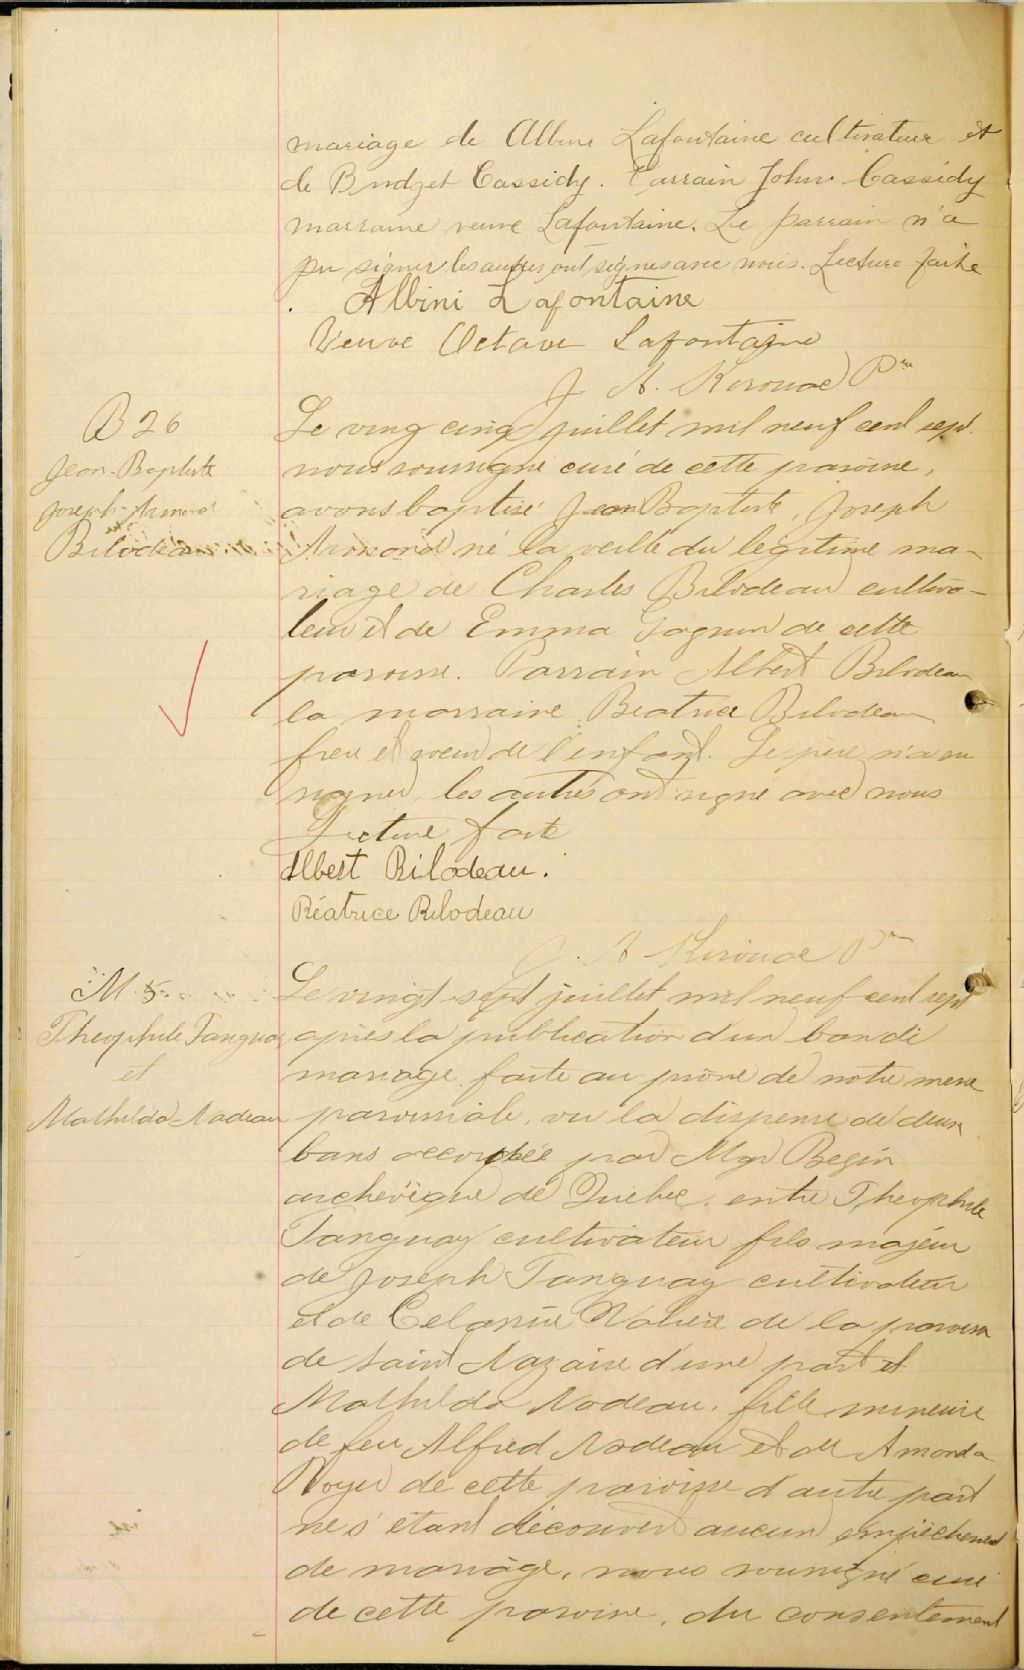 mariage de Albini Lafontaine cultivateur et
de Bridget Cassidy. Parrain John Cassidy
marraine veuve Lafontaine. Le parrain n'a
pu signer les autres ont signés avec nous. Lecture faite
Albini Lafontaine
Veuve Octave Lafontaine
J. A. Kirouac Ptre
B 26
Jean-Baptiste
Joseph Armand
Bilodeau
Le ving cinq juillet mil neuf cent sept.
nous soussigné curé de cette paroisse,
avons baptisé Jean Baptiste, Joseph
Armand né la veille du légitime ma-
riage de Charles Bilodeau cultiva-
teur et de Emma Gagnon de cette
paroisse. Parrain Albert Bilodeau
la marraine Béatrice Bilodeau
frère et soeur de l'enfant. Le père n'a su
signer les autres ont signé avec nous
Lecture faite
Albert Bilodeau.
Béatrice Bilodeau
J. A. Kirouac Ptre
M. 5
Theophile Tanguay
et
Mathilda Nadeau
Le vingt-sept juillet mil neuf cent sept
après la publication d'un ban de
mariage faite au prône de notre messe
paroissiale, vu la dispense de deux
bans accordée par Mgr Begin
archevêque de Québec, entre Theophile
Tanguay cultivateur fils majeur
de Joseph Tanguay cultivateur
et de Celanire de la paroisse
de saint Nazaire d'une part et
Mathilda Nadeau, fille mineure
de feu Alfred Nadeau et de Amanda
Royer de cette paroisse d'autre part
ne s'étant découvert aucun empêchement
de mariage, nous soussigné curé
de cette paroisse, du consentement